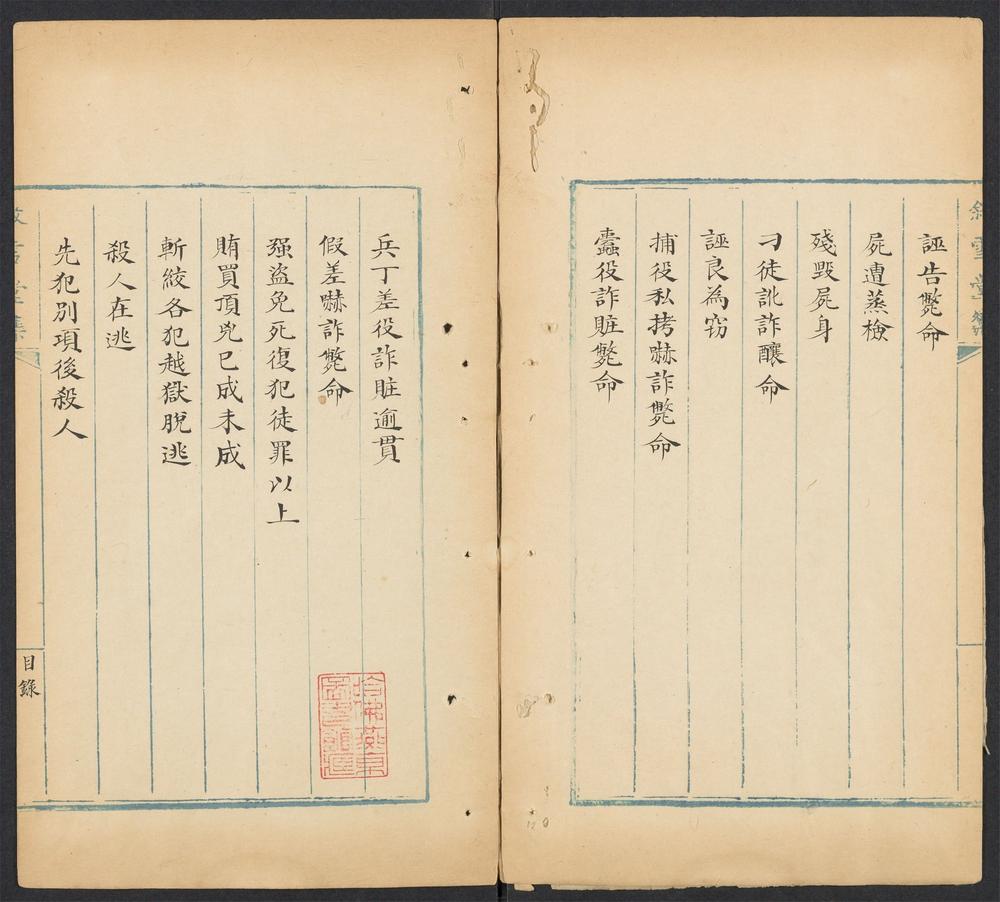 誣告斃命
屍遭蒸檢
殘毀屍身
刁徒訛詐釀命
誣良為窃
捕役私拷嚇詐斃命
蠹役詐賍斃命
兵丁差役詐賍逾貫
假差嚇詐斃命
强盜免死復犯徒罪以上
賄買頂兇已成未成
斬絞各犯越獄脫逃
殺人在逃
先犯別項後殺人
目錄
哈佛燕京
圖書館